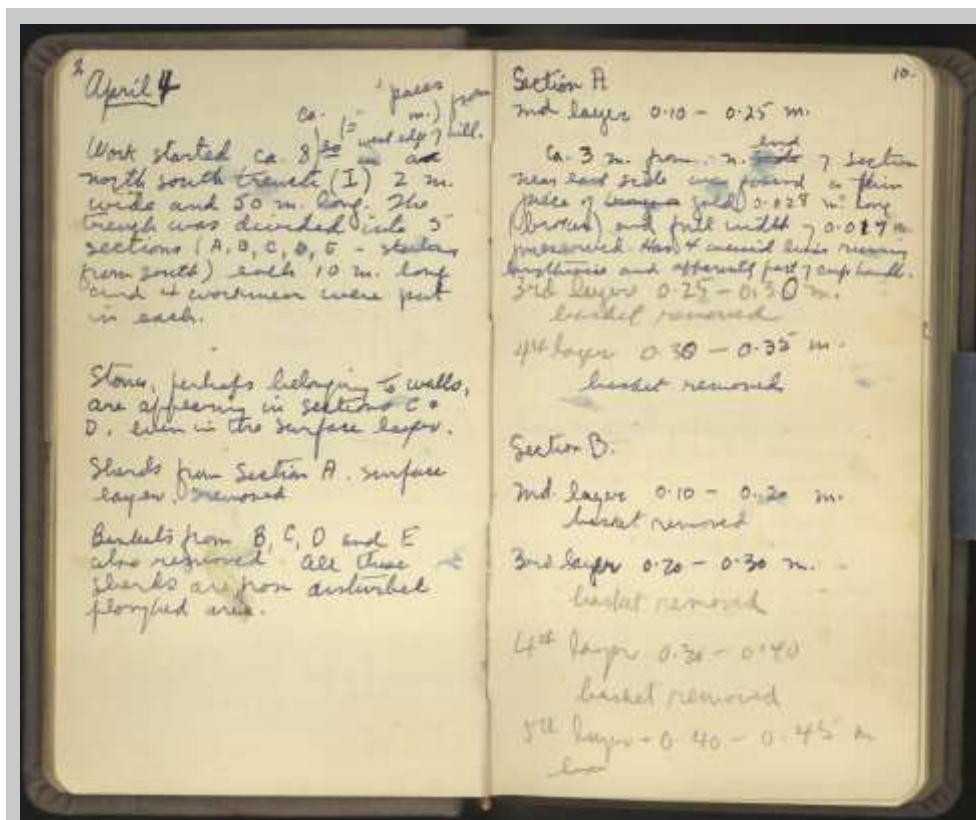 2
April 4
ca. paces
(= m.) from
Work started ca. 8) 30 west edge of hill.
north south trench (I) 2 m.
wide and 50 m. long. The
trench was divided into 5
sections (A, B, C, D, E - starting
from south) each 10 m. long
and 4 workmen were put
in each.
Stones, perhaps belonging to walls,
are appearing in sections C +
D. even in the surface layer.
Sherds from Section A. surface
layer. removed
Baskets from B, C, D and E
also removed. All these
sherds are from disturbed
ploughed area.
10.
Section A
2nd layer 0.10 - 0.25 m.
end
Ca. 3 m. from n. side of section
near east side was found a thin
piece of gold 0.028 m. long
(broken) and full width of 0.017 m
preserved. Has 4 incised lines running
lengthwise and apparently part of cup handle.
3rd layer 0.25 - 0.30 m.
basket removed
4th layer 0.30 - 0.35 m.
basket removed
Section B.
2nd layer 0.10 - 0.20 m.
basket removed
3rd layer 0.20 - 0.30 m.
basket removed
4th layer 0.30 - 0.40
basket removed
5th layer - 0.40 - 0.45 m